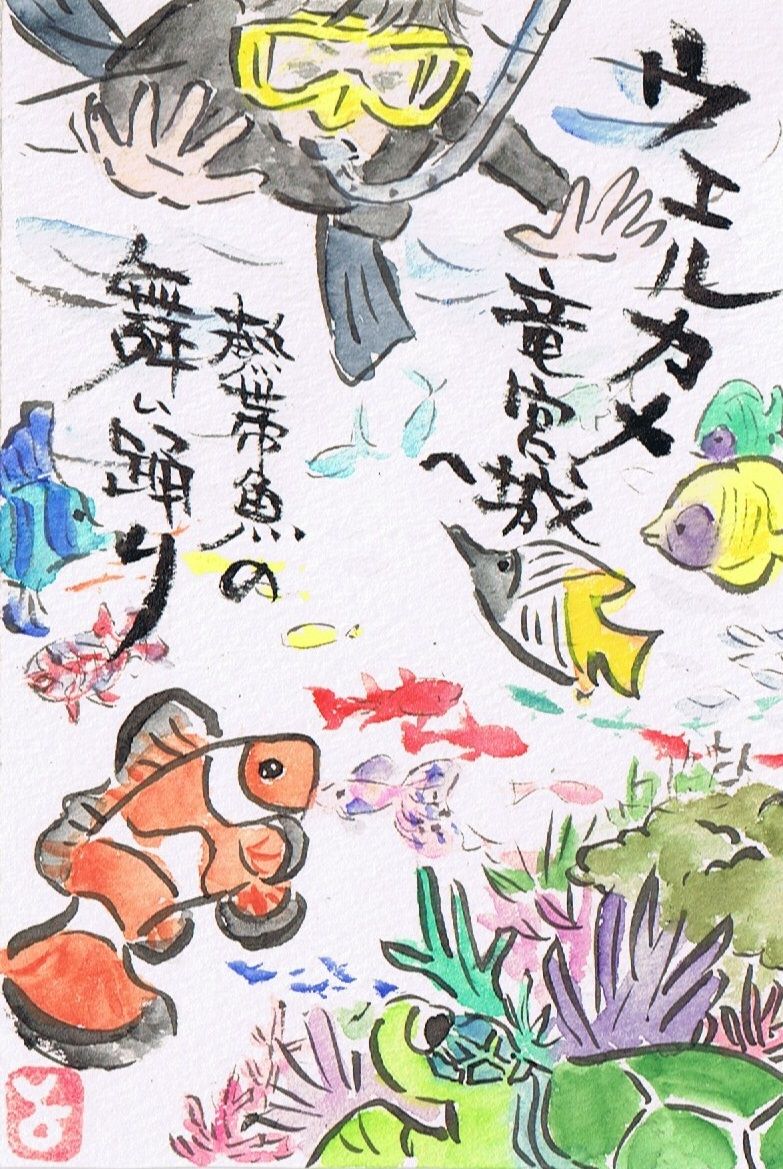 ウエルカメ
竜宮城へ
熱帯魚の
舞い踊り
よ